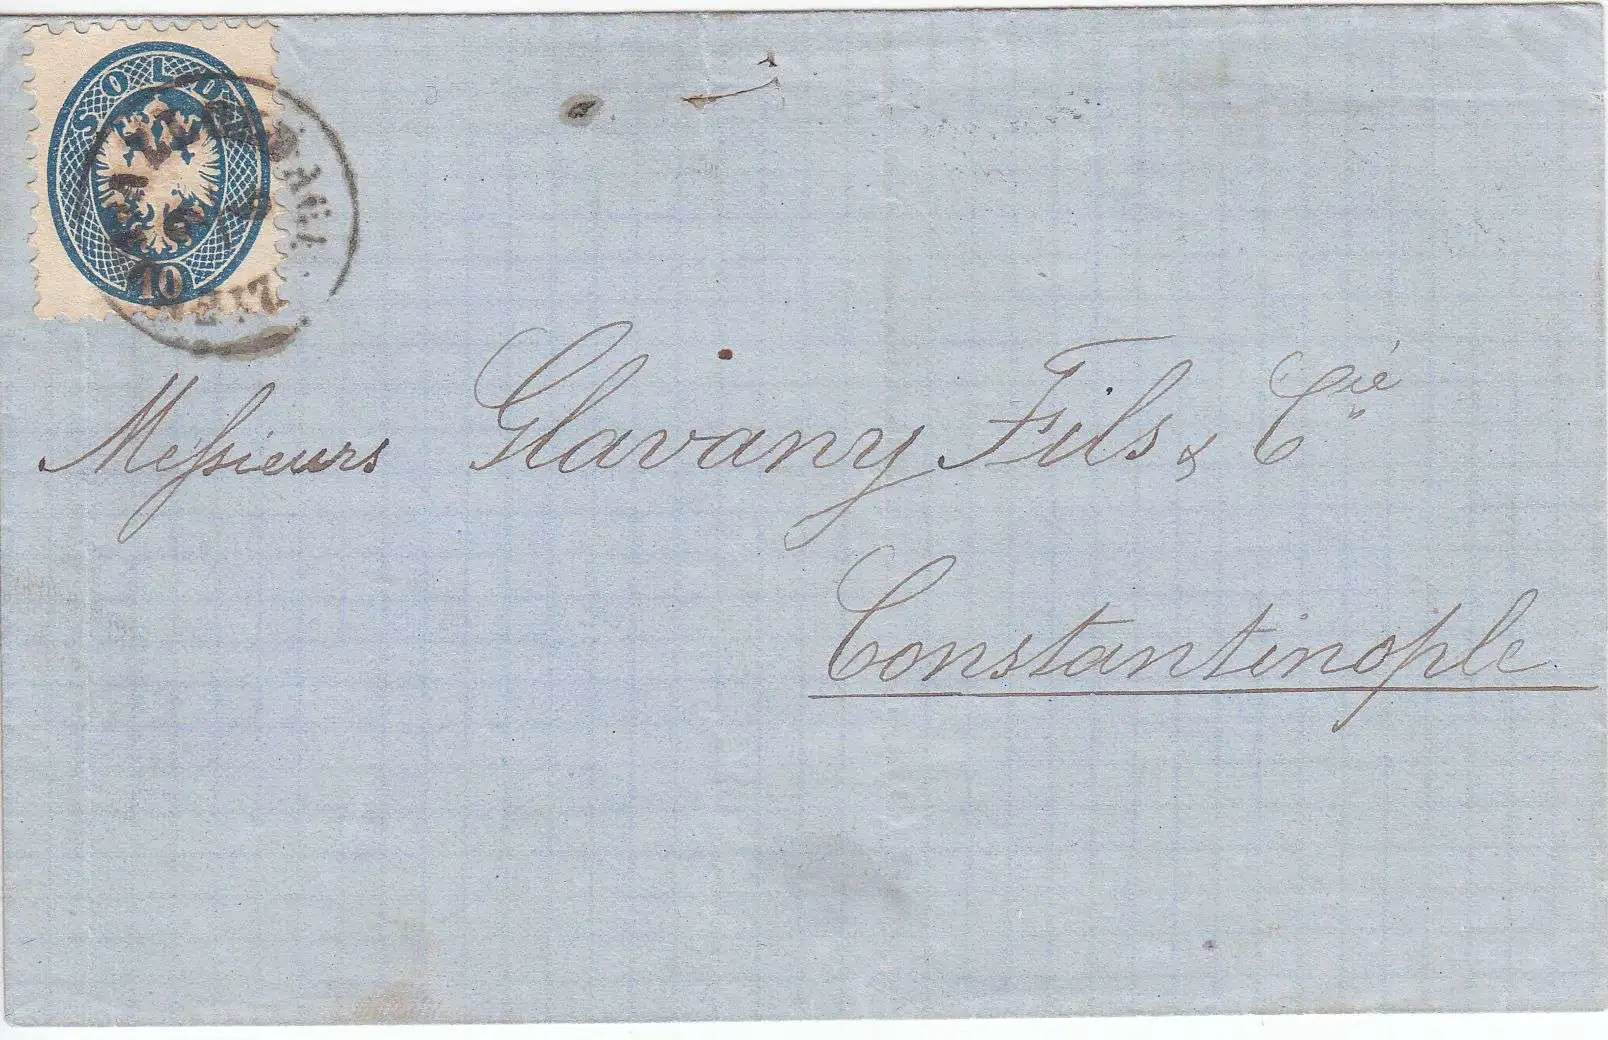 SOLDI
10
Messieurs Glavany Fils & Cie
Constantinople